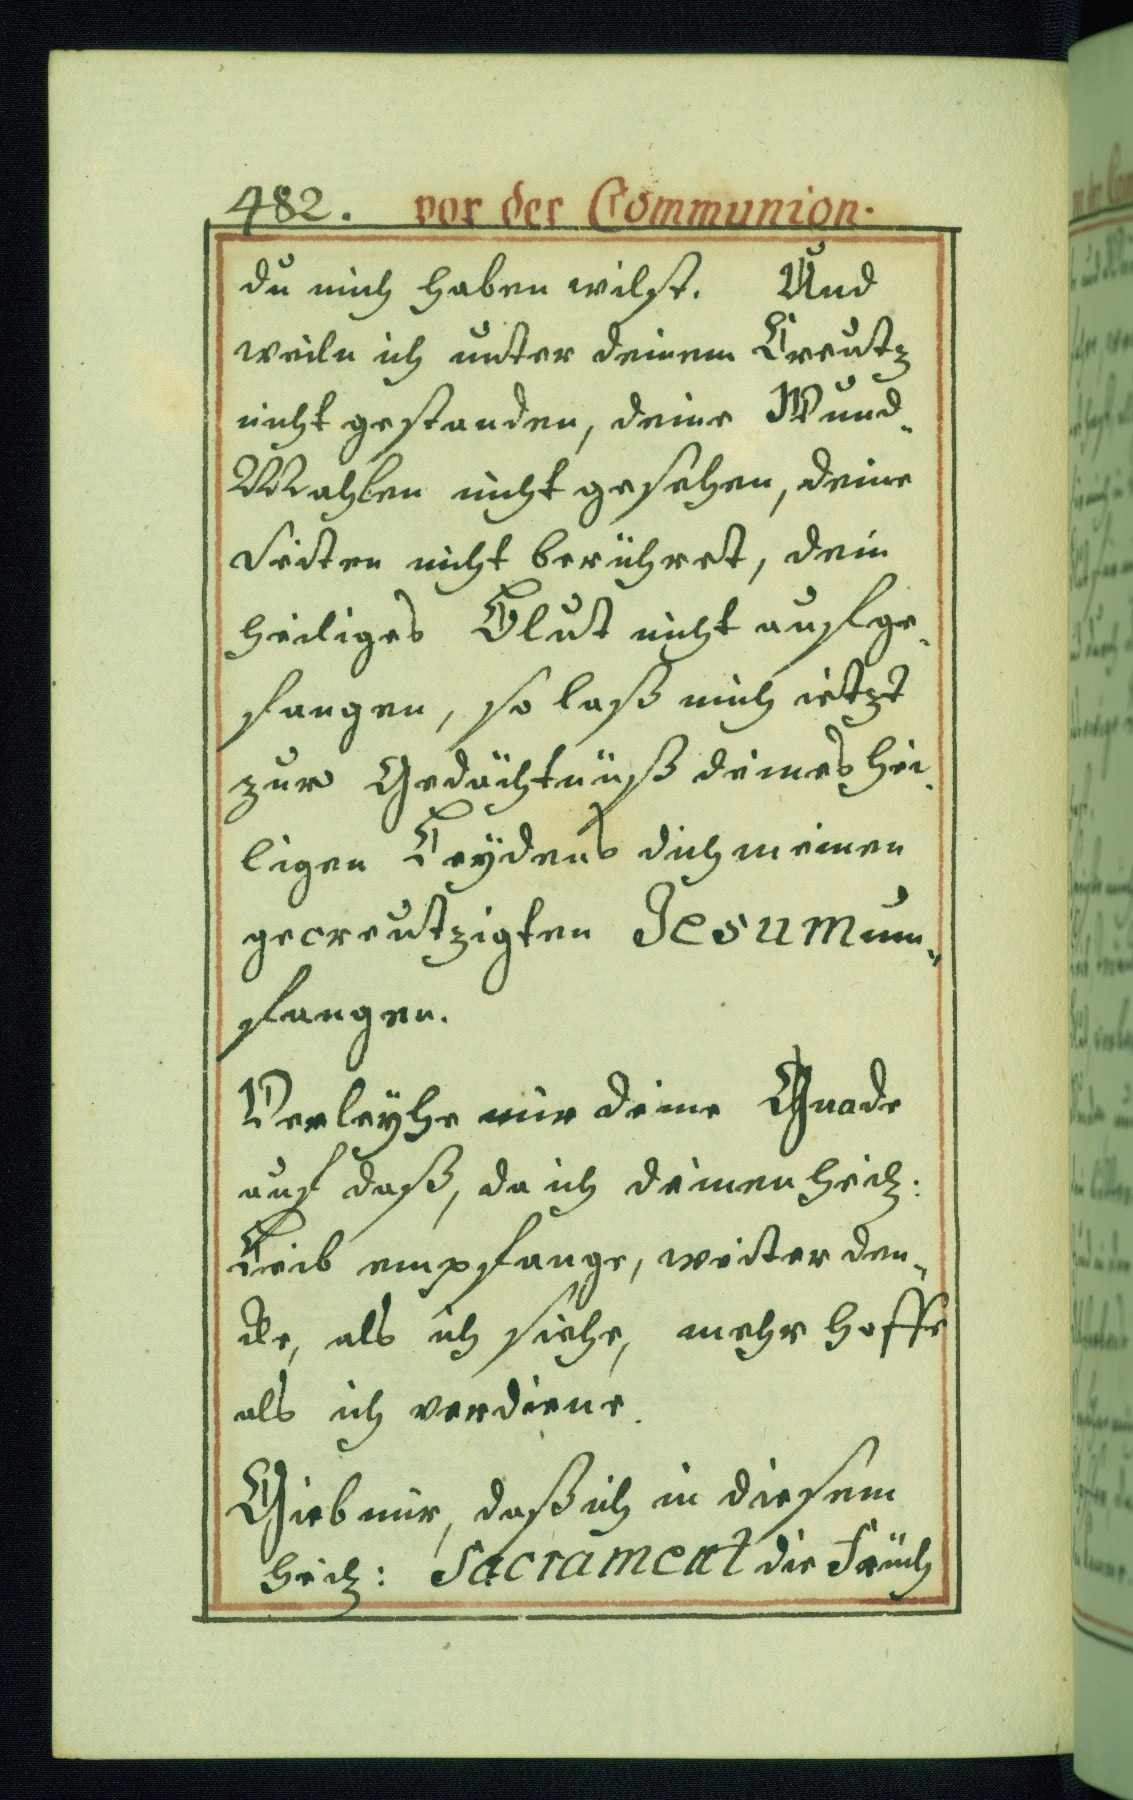 482. vor der Communion.
du mich haben wilst. Und
weiln ich unter deinem Creutz
nicht gestanden, deine Wund-
Mahlen nicht gesehen, deine
Seiten nicht berühret, dein
heiliges Blut nicht aufge-
fangen, so laß mich ietzt
zur Gedächtnüß deines hei-
ligen Leÿdens dich meinen
gecreutzigten Jesum um-
fangen.
Verleÿhe mir deine Gnade
auf daß, da ich deinen heil:
Leib empfange, weiter den-
cke, als ich siehe, mehr hoffe
als ich verdiene.
Gieb mir, daß ich in diesem
heil: Sacrament die Früch